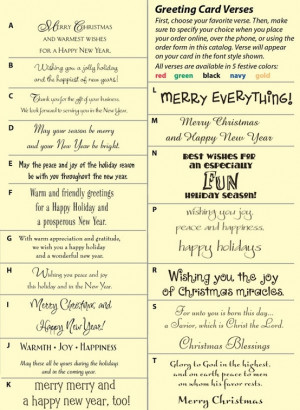 A
Merry Christmas
and warmest wishes
for a Happy New Year.
B
Wishing you a jolly holiday
and the happiest of new years!
C
Thank you for the gift of your business.
We look forward to serving you in the New Year.
D
May your season be merry
and your New Year be bright.
E
May the peace and joy of the holiday season
be with you throughout the new year.
F
Warm and friendly greetings
for a Happy Holiday and
a prosperous New Year.
G
With warm appreciation and gratitude,
we wish you a happy holiday
and a wonderful new year.
H
Wishing you peace and joy
this holiday and in the New Year.
I
Merry Christmas and
Happy New Year!
J
Warmth • Joy • Happiness
May these all be yours during the holidays
and in the coming year.
K
merry merry and
a happy new year, too!
Greeting Card Verses
First, choose your favorite verse. Then, make
sure to specify your choice when you place
your order online, over the phone, or using the
order form in this catalog. Verse will appear
on your card in the font style shown.
All verses are available in 5 festive colors:
red green black navy gold
L
MERRY EVERYTHING!
M
Merry Christmas
and Happy New Year
N
BEST WISHES FOR
AN ESPECIALLY
FUN
HOLIDAY SEASON!
P
wishing you joy,
peace and happiness.
happy holidays
R
Wishing you the joy
of Christmas miracles.
S
For unto you is born this day...
a Savior, which is Christ the Lord.
Christmas Blessings
T
Glory to God in the highest,
and on earth peace to men
on whom his favor rests.
Merry Christmas